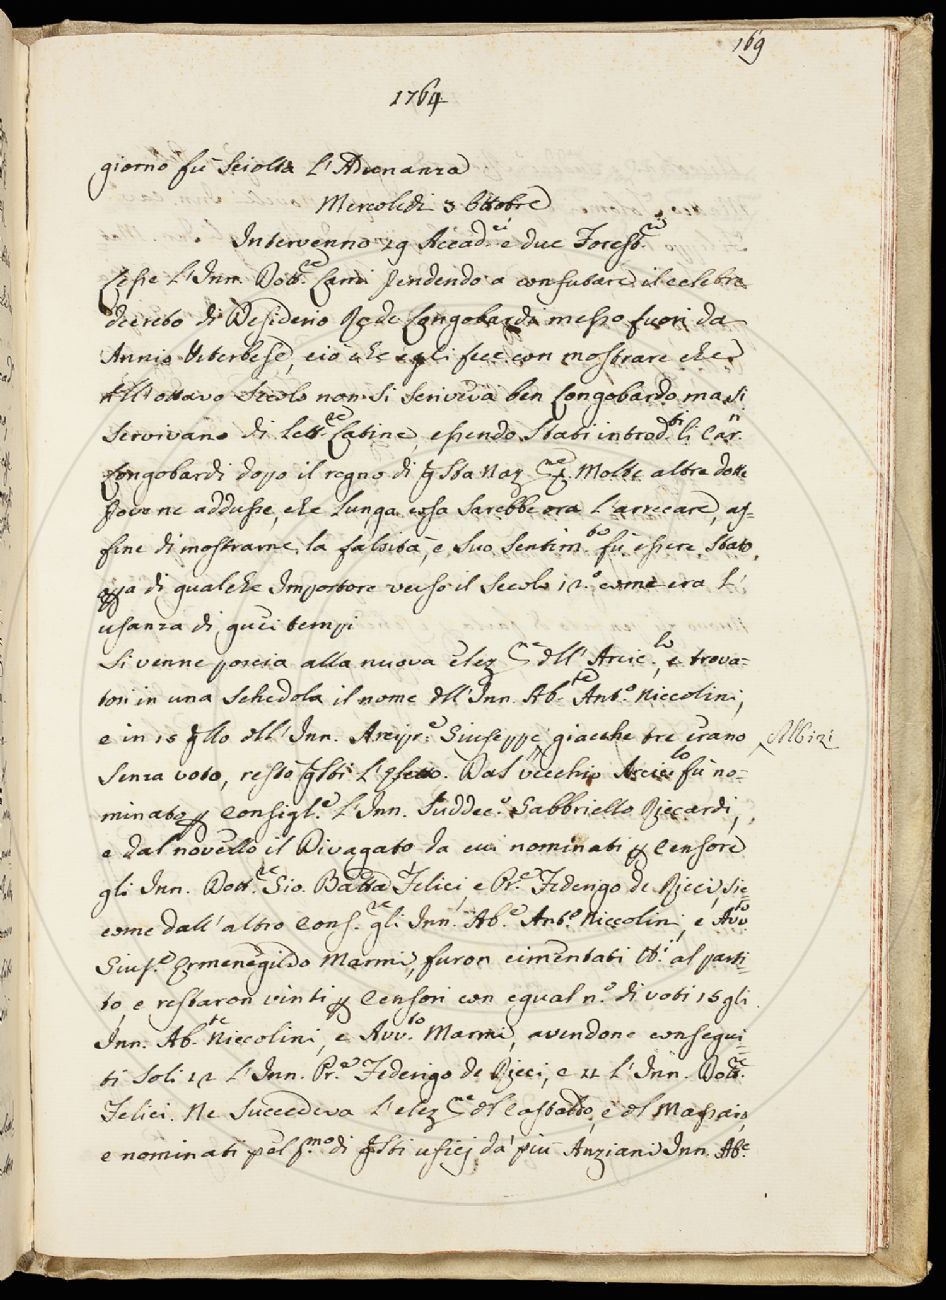 169
1764
giorno fù Sciolta l'Adunanza
Mercoledì 3 Ottobre
Intervenno 29 Accad.ci e due Forest.ri
Lesse l'Inn. Dott.re Lami prendendo a confutare il celebre
decreto di Desiderio Re de Longobardi messo fuori da
Annio Viterbese, ciò che egli fece con mostrare che
all'ottavo Secolo non Si Scriveva ben Longobardo, ma si
Servivano di lett.re Latine, essendo Stati introd.ti li Car.n
Longobardi dopo il regno di q̃sta Naz.ne Molte altre dotte
prove ne addusse, che lunga cosa Sarebbe ora l'arrecare, af=
fine di mostrarne la falsità, e Suo Sentim.to fù essere Stato
opa di qualche Impostore verso il Secolo 12.° come era l'
usanza di quei tempi
Si venne poscia alla nuova elez.ne dell' Arcic.lo, e trova=
tosi in una Schedola il nome dell'Inn. Ab.te Ant.o Niccolini,
e in 15 q̃llo dell'Inn. Arcipr.e Giuseppe giacche tre erano Albizi
Senza voto, restò q̃sti l'eletto. Dal vecchio Arcic.lo fù no=
minato p Consigl.e l'Inn. Suddec.o Gabbriello Riccardi,
e dal novello il Divagato, da cui nominati p Censore
gli Inn. Dott.re Gio. Batta Felici e Pr.e Federigo de Ricci, Sic=
come dall'altro Cons.re gli Inn. Ab.e Ant.o Niccolini, e Avv.to
Gius.e Ermenegildo Marmi, furon cimentati tt.i al parti=
to, e restaron vinti p Censori con egual n.o di voti 15 gli
Inn. Ab.te Niccolini, e Avv.to Marmi, avendone consegui=
ti Soli 12 l'Inn. Pr.e Federigo de Ricci, e 11 l'Inn. Dott.re
Felici. Ne Succedeva l'elez.ne del Castaldo, e del Massaio,
e nominati pel p.mo di q̃sti ufici da più Anziani Inn. Ab.e